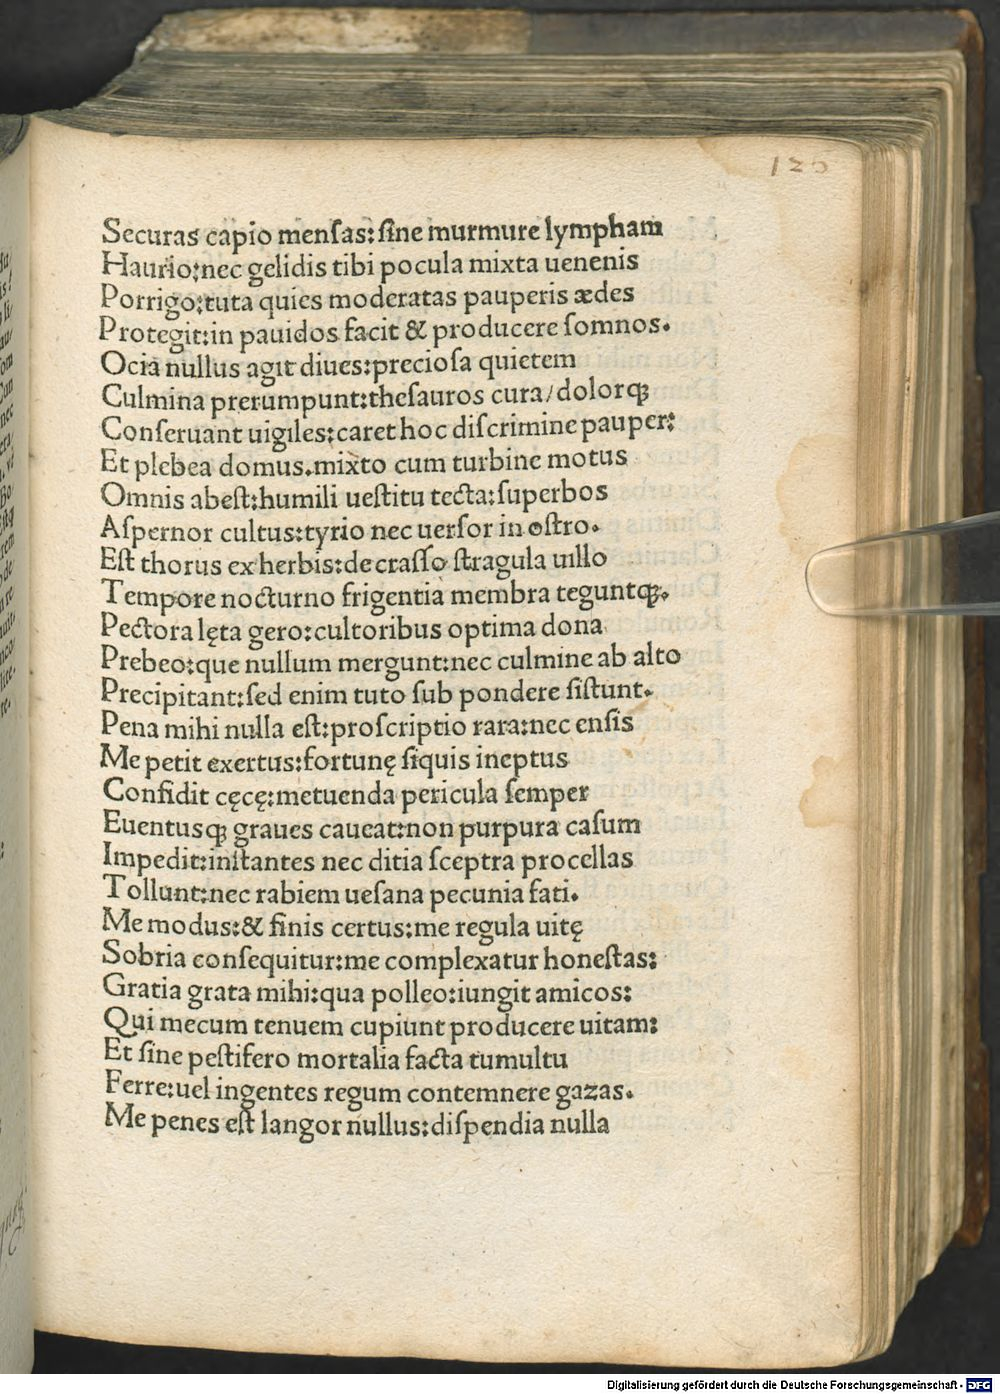 120
Securas capio menſas: ſine murmure lympham
Haurio: nec gelidis tibi pocula mixta uenenis
Porrigo: tuta quies moderatas pauperis ædes
Protegit: in pauidos facit & producere ſomnos.
Ocia nullus agit diues: precioſa quietem
Culmina prerumpunt: theſauros cura/ dolorqꝫ
Conſeruant uigiles: caret hoc diſcrimine pauper:
Et plebea domus. mixto cum turbine motus
Omnis abeſt: humili ueſtitu tecta: ſuperbos
Aſpernor cultus: tyrio nec uerſor in oſtro.
Eſt thorus ex herbis: de craſſo ſtragula uillo
Tempore nocturno frigentia membra teguntqꝫ.
Pectora lęta gero: cultoribus optima dona
Prebeo: que nullum mergunt: nec culmine ab alto
Precipitant: ſed enim tuto ſub pondere ſiſtunt.
Pena mihi nulla eſt: proſcriptio rara: nec enſis
Me petit exertus: fortunę ſiquis ineptus
Confidit cęcę: metuenda pericula ſemper
Euentusqꝫ graues caueat: non purpura caſum
Impedit: inſtantes nec ditia ſceptra procellas
Tollunt: nec rabiem ueſana pecunia fati.
Me modus: & finis certus: me regula uitę
Sobria conſequitur: me complexatur honeſtas:
Gratia grata mihi: qua polleo: iungit amicos:
Qui mecum tenuem cupiunt producere uitam:
Et ſine peſtifero mortalia facta tumultu
Ferre: uel ingentes regum contemnere gazas.
Me penes eſt langor nullus: diſpendia nulla
Digitalisierung gefördert durch die Deutsche Forschungsgemeinschaft - DFG